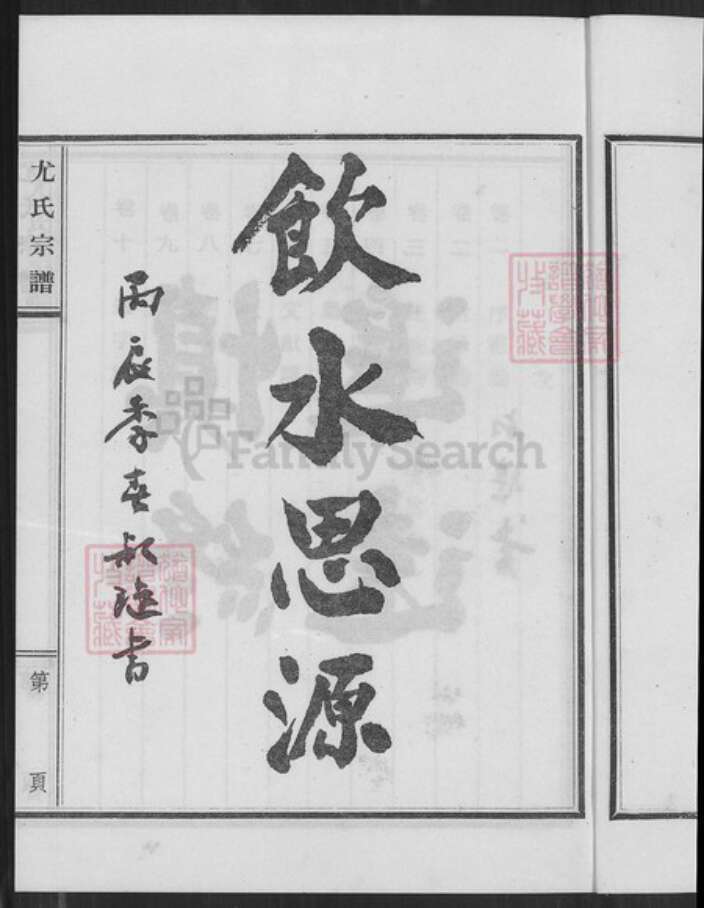 飲水思源
丙辰季春叔蓮書
尤氏宗譜
第 頁
FamilySearch